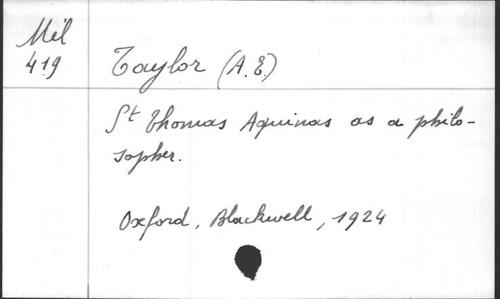 Mél
419
Taylor (A.E.)
St Thomas Aquinas as a philo-
sopher.
Oxford, Blackwell, 1924